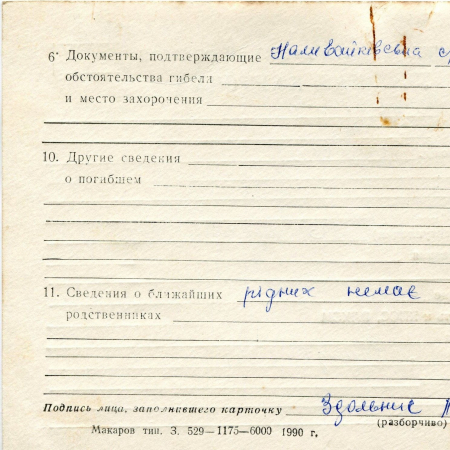 6· Документы, подтверждающие Наливайківська
обстоятельства гибели
и место захоронения
10. Другие сведения
о погибшем
11. Сведения о ближайших рідних немає
родственниках
Подпись лица, заполнившего карточку
(разборчиво)
Макаров тип. З. 529—1175—6000 1990 г.